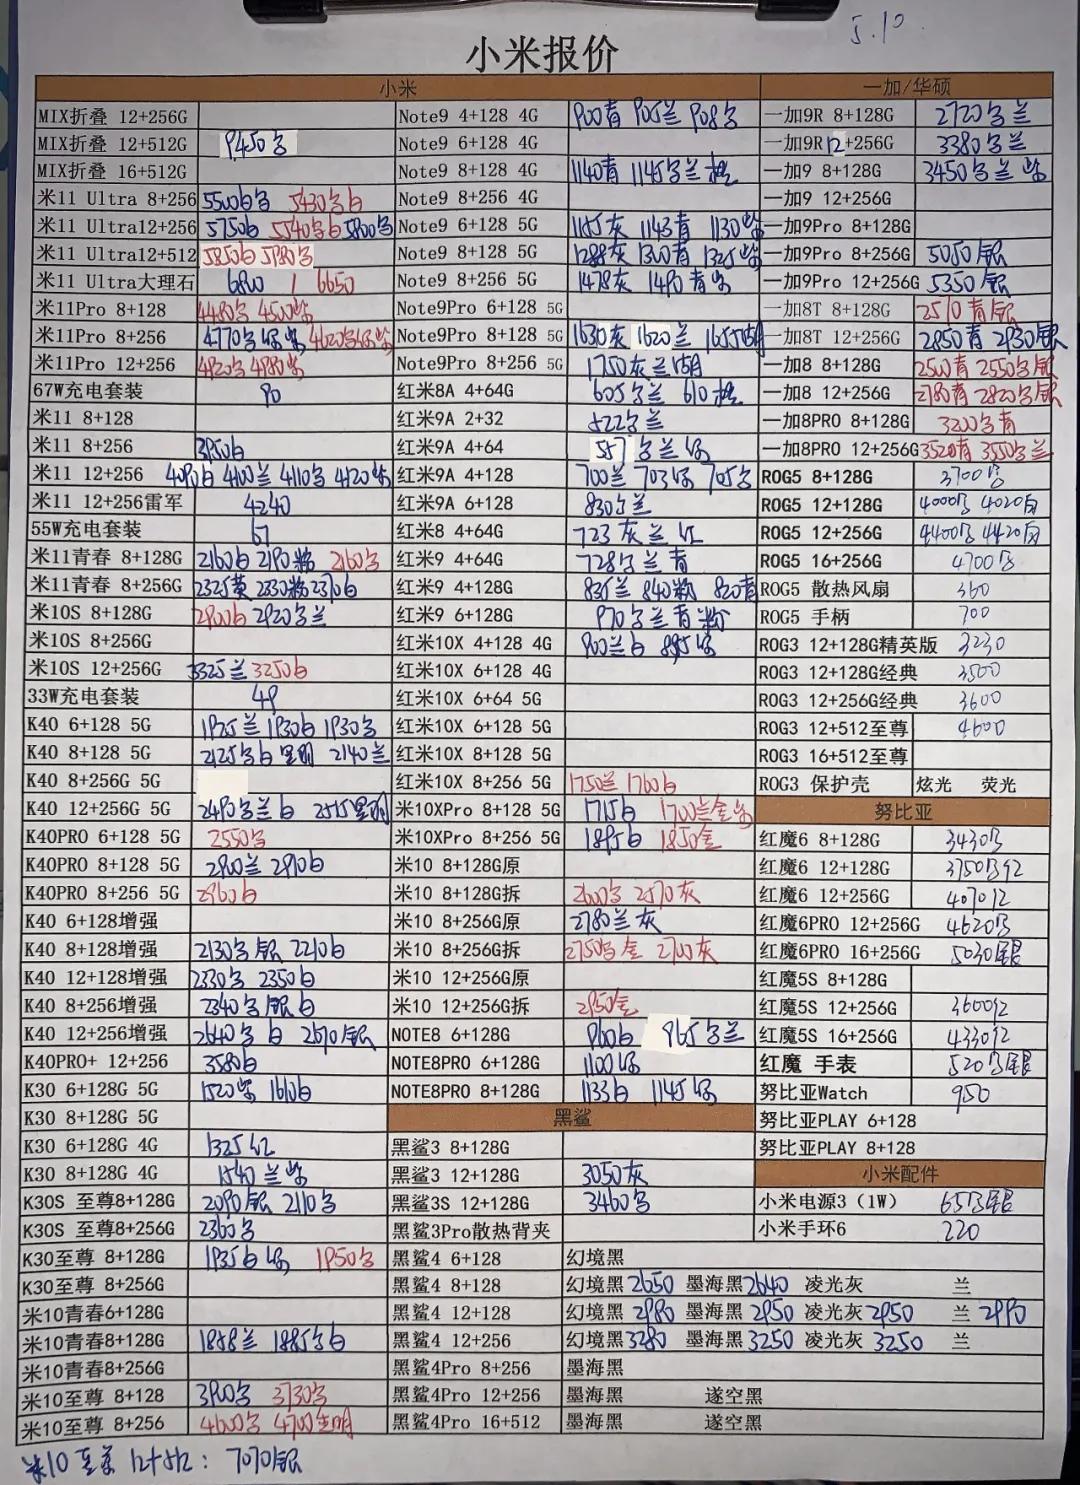 5.10
小米报价
小米 一加/华硕
MIX折叠 12+256G Note9 4+128 4G 900青 905兰 908字 一加9R 8+128G 2720字兰
MIX折叠 12+512G 9450字 Note9 6+128 4G 一加9R 12+256G 3380字兰
MIX折叠 16+512G Note9 8+128 4G 1140青 1145字兰橙 一加9 8+128G 3450字兰紫
米11 Ultra 8+256 5500白字 5430字白 Note9 8+256 4G 一加9 12+256G
米11 Ultra12+256 5750白 5540字白 5800字 Note9 6+128 5G 1145灰 1143青 1130紫 一加9Pro 8+128G
米11 Ultra12+512 5850白 5780字 Note9 8+128 5G 1288灰 1300青 1325紫 一加9Pro 8+256G 5050银
米11 Ultra大理石 6800 / 6650 Note9 8+256 5G 1478灰 1490青字 一加9Pro 12+256G 5350银
米11Pro 8+128 4480字 4500紫 Note9Pro 6+128 5G 一加8T 8+128G 2570青银
米11Pro 8+256 4770字绿紫 4620字绿紫 Note9Pro 8+128 5G 1630灰 1620兰 1655明 一加8T 12+256G 2850青 2930银
米11Pro 12+256 4920字 4980紫 Note9Pro 8+256 5G 1750灰兰明 一加8 8+128G 2500青 2550字银
67W充电套装 90 红米8A 4+64G 605字兰 610橙 一加8 12+256G 2780青 2820字银
米11 8+128 红米9A 2+32 522字兰 一加8PRO 8+128G 3200字青
米11 8+256 3950白 红米9A 4+64 557字兰绿 一加8PRO 12+256G 3520青 3550字兰
米11 12+256 4090白 4100兰 4110字 4120紫 红米9A 4+128 700兰 703绿 705字 ROG5 8+128G 3700
米11 12+256雷军 4240 红米9A 6+128 830字兰 ROG5 12+128G 4000 4020白
55W充电套装 67 红米8 4+64G 723灰兰红 ROG5 12+256G 4400 4420白
米11青春 8+128G 2160白 2190粉 2160字 红米9 4+64G 728字兰青 ROG5 16+256G 4700
米11青春 8+256G 2325黄 2330粉 2370白 红米9 4+128G 835兰 840粉 820青 ROG5 散热风扇 360
米10S 8+128G 2900白 2920字兰 红米9 6+128G 970字兰青粉 ROG5 手柄 700
米10S 8+256G 红米10X 4+128 4G 900兰白 895绿 ROG3 12+128G精英版 3230
米10S 12+256G 3325兰 3250白 红米10X 6+128 4G ROG3 12+128G经典 3500
33W充电套装 49 红米10X 6+64 5G ROG3 12+256G经典 3600
K40 6+128 5G 1925兰 1930白 1930字 红米10X 6+128 5G ROG3 12+512至尊 4600
K40 8+128 5G 2125字白 2140兰 红米10X 8+128 5G ROG3 16+512至尊
K40 8+256G 5G 红米10X 8+256 5G 1750兰 1760白 ROG3 保护壳 炫光 荧光
K40 12+256G 5G 2490字兰白 2515 米10XPro 8+128 5G 1715白 1700兰金字 努比亚
K40PRO 6+128 5G 2550字 米10XPro 8+256 5G 1895白 1850金 红魔6 8+128G 3430
K40PRO 8+128 5G 2900兰 2910白 米10 8+128G原 红魔6 12+128G 3750红
K40PRO 8+256 5G 2960白 米10 8+128G拆 2600字 2570灰 红魔6 12+256G 4070红
K40 6+128增强 米10 8+256G原 2780兰灰 红魔6PRO 12+256G 4620
K40 8+128增强 2130字银 2210白 米10 8+256G拆 2750字金 2700灰 红魔6PRO 16+256G 5030银
K40 12+128增强 2330字 2350白 米10 12+256G原 红魔5S 8+128G
K40 8+256增强 2340字银白 米10 12+256G拆 2950金 红魔5S 12+256G 3600红
K40 12+256增强 2640字白 2670银 NOTE8 6+128G 960白 965字兰 红魔5S 16+256G 4330红
K40PRO+ 12+256 3580白 NOTE8PRO 6+128G 1100绿 红魔 手表 520银
K30 6+128G 5G 1520紫 1610白 NOTE8PRO 8+128G 1133白 1145绿 努比亚Watch 950
K30 8+128G 5G 黑鲨 努比亚PLAY 6+128
K30 6+128G 4G 1325红 黑鲨3 8+128G 努比亚PLAY 8+128
K30 8+128G 4G 1540兰紫 黑鲨3 12+128G 3050灰 小米配件
K30S 至尊8+128G 2090银 2110字 黑鲨3S 12+128G 3460字 小米电源3（1W） 65银
K30S 至尊8+256G 2360字 黑鲨3Pro散热背夹 小米手环6 220
K30至尊 8+128G 1935白绿 1950字 黑鲨4 6+128 幻境黑
K30至尊 8+256G 黑鲨4 8+128 幻境黑2650 墨海黑2640 凌光灰 兰
米10青春6+128G 黑鲨4 12+128 幻境黑2980 墨海黑2950 凌光灰2950 兰2990
米10青春8+128G 1888兰 1885字白 黑鲨4 12+256 幻境黑3280 墨海黑3250 凌光灰3250 兰
米10青春8+256G 黑鲨4Pro 8+256 墨海黑
米10至尊 8+128 3900字 3730字 黑鲨4Pro 12+256 墨海黑 遂空黑
米10至尊 8+256 4600字 4700透明 黑鲨4Pro 16+512 墨海黑 遂空黑
米10至尊 12+512：7070银